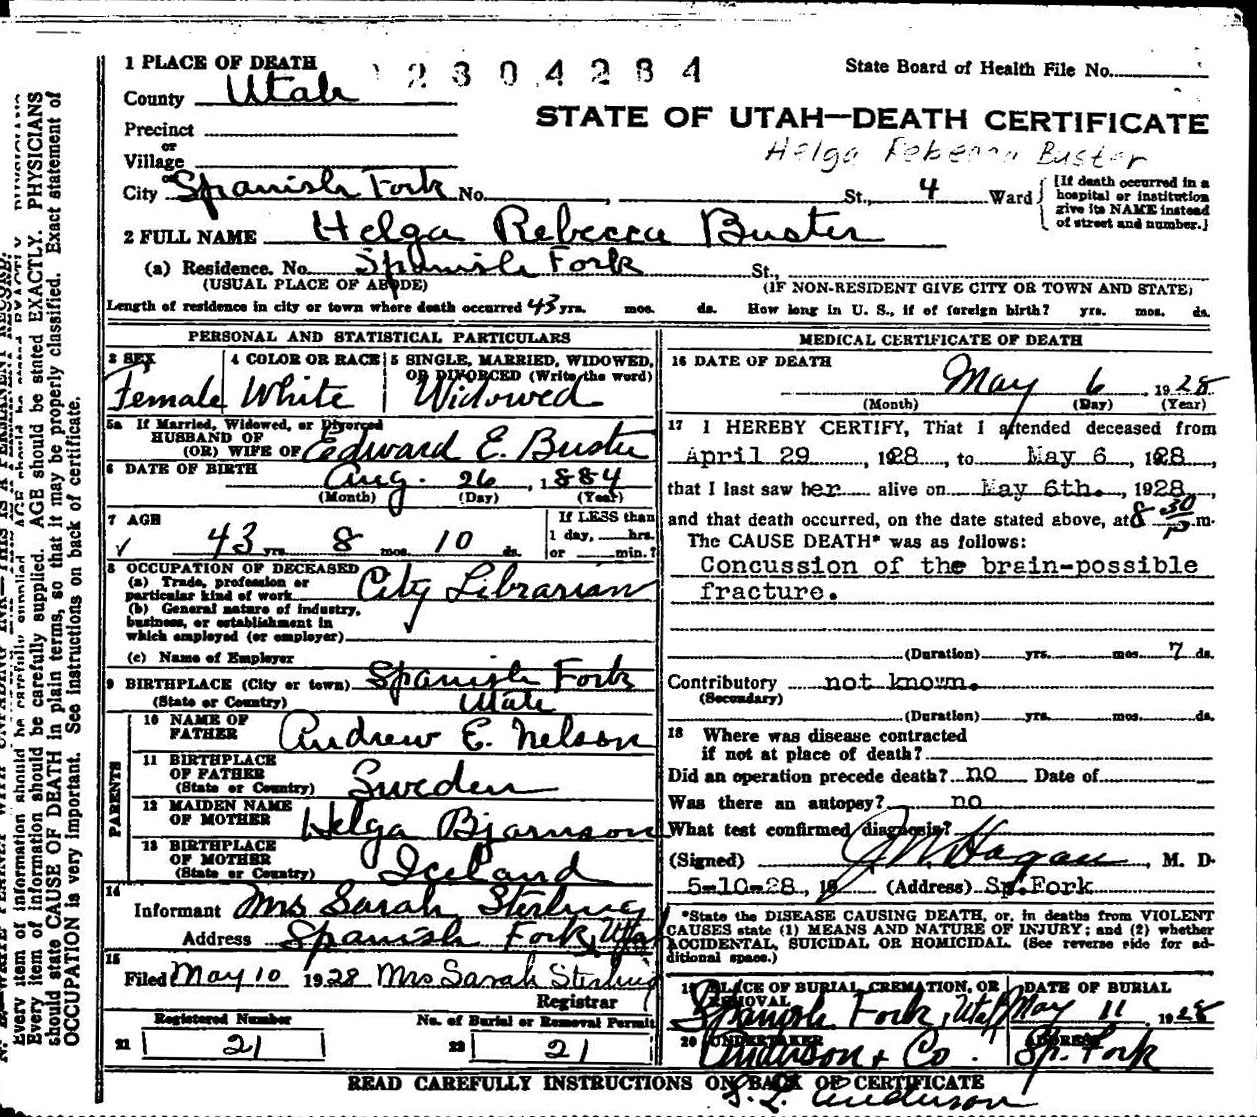 1 PLACE OF DEATH 2 3 0 4 2 8 4 State Board of Health File No.
County Utah
STATE OF UTAH—DEATH CERTIFICATE
Precinct
or
Village
Helga Rebecca Buster
or
City Spanish Fork No. , St., 4 Ward
[If death occurred in a
hospital or institution
give its NAME instead
of street and number.]
2 FULL NAME Helga Rebecca Buster
(a) Residence. No. Spanish Fork St.,
(USUAL PLACE OF ABODE) (IF NON-RESIDENT GIVE CITY OR TOWN AND STATE)
Length of residence in city or town where death occurred 43 yrs. mos. ds. How long in U. S., if of foreign birth? yrs. mos. ds.
PERSONAL AND STATISTICAL PARTICULARS
3 SEX
Female
4 COLOR OR RACE
White
5 SINGLE, MARRIED, WIDOWED,
OR DIVORCED (Write the word)
Widowed
5a If Married, Widowed, or Divorced
HUSBAND OF
(OR) WIFE OF Edward E. Buster
6 DATE OF BIRTH Aug. 26, 1884
(Month) (Day) (Year)
7 AGE
43 yrs. 8 mos. 10 ds.
If LESS than
1 day, hrs.
or min.?
8 OCCUPATION OF DECEASED
(a) Trade, profession or
particular kind of work City Librarian
(b) General nature of industry,
business, or establishment in
which employed (or employer)
(c) Name of Employer
9 BIRTHPLACE (City or town) Spanish Fork
(State or Country) Utah
PARENTS
10 NAME OF
FATHER Andrew E. Nelson
11 BIRTHPLACE
OF FATHER
(State or Country) Sweden
12 MAIDEN NAME
OF MOTHER Helga Bjarnson
13 BIRTHPLACE
OF MOTHER
(State or Country) Iceland
14
Informant Mrs Sarah Sterling
Address Spanish Fork, Utah
15
Filed May 10 1928 Mrs Sarah Sterling
Registrar
Registered Number
21 21
No. of Burial or Removal Permit
22 21
MEDICAL CERTIFICATE OF DEATH
16 DATE OF DEATH
May 6, 1928
(Month) (Day) (Year)
17 I HEREBY CERTIFY, That I attended deceased from
April 29, 1928, to May 6, 1928,
that I last saw her alive on May 6th., 1928,
and that death occurred, on the date stated above, at 8 30 P m.
The CAUSE DEATH* was as follows:
Concussion of the brain-possible
fracture.
(Duration) yrs. mos. 7 ds.
Contributory not known.
(Secondary)
(Duration) yrs. mos. ds.
18 Where was disease contracted
if not at place of death?
Did an operation precede death? no Date of
Was there an autopsy? no
What test confirmed diagnosis?
(Signed) Hagan, M. D.
5-10-28, 19 (Address) Sp.Fork
*State the DISEASE CAUSING DEATH, or, in deaths from VIOLENT
CAUSES state (1) MEANS AND NATURE OF INJURY; and (2) whether
ACCIDENTAL, SUICIDAL OR HOMICIDAL. (See reverse side for ad-
ditional space.)
19 PLACE OF BURIAL, CREMATION, OR
REMOVAL
Spanish Fork, Utah
DATE OF BURIAL
May 11, 1928
20 UNDERTAKER
Anderson & Co.
ADDRESS
Sp. Fork
READ CAREFULLY INSTRUCTIONS ON BACK OF CERTIFICATE
Anderson
Every item of information should be carefully supplied. AGE should be stated EXACTLY. PHYSICIANS
should state CAUSE OF DEATH in plain terms, so that it may be properly classified. Exact statement of
OCCUPATION is very important. See instructions on back of certificate.